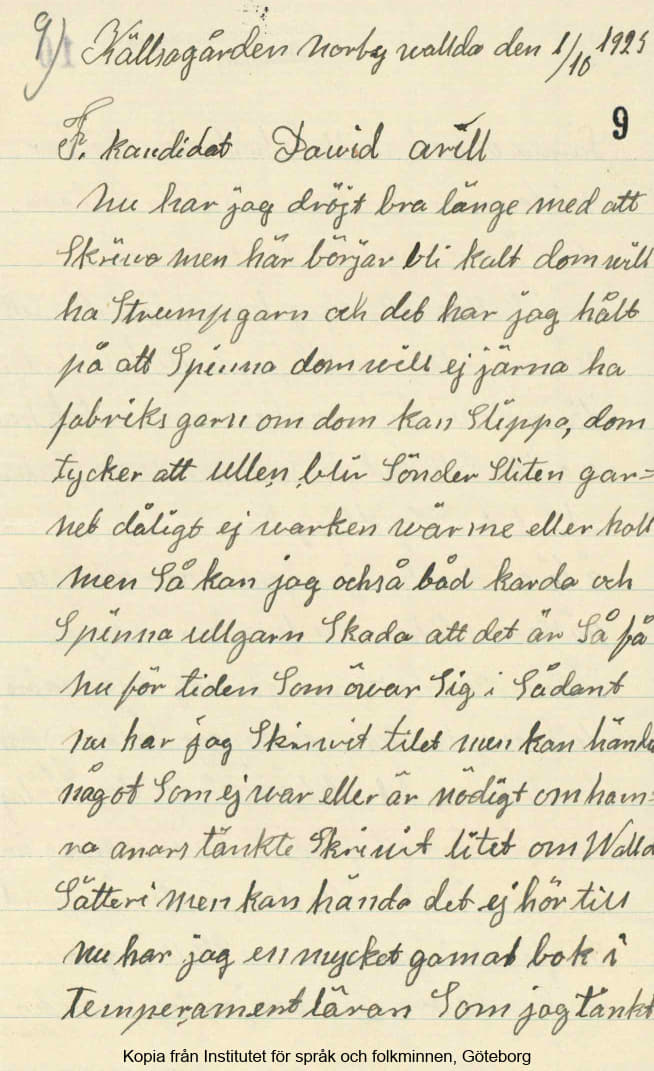 9) Källsagården Norby wallda den 1/10 1925
9
F. kandidat Dawid arill
Nu har jag dröjt bra länge med att
Skriwa men här börjar bli kalt dom will
ha Strumpgarn och det har jag hålt
på att Spinna dom will ej järna ha
fabriks garn om dom kan Slippa, dom
tycker att ullen blir Sönder Sliten gar=
net dåligt ej warken wärme eller holl
men Så kan jag också båd karda och
Spinna ullgarn Skada att det är Så få
nu för tiden Som öwar Sig i Sådant
nu har jag Skriwit litet men kan hända
något Som ej war eller är nödigt om ham=
na anars tänkte Skriwit litet om Walla
Sätteri men kan hända det ej hör till
nu har jag en mycket gamal bok i
temperament läran Som jag tänkt
Kopia från Institutet för språk och folkminnen, Göteborg